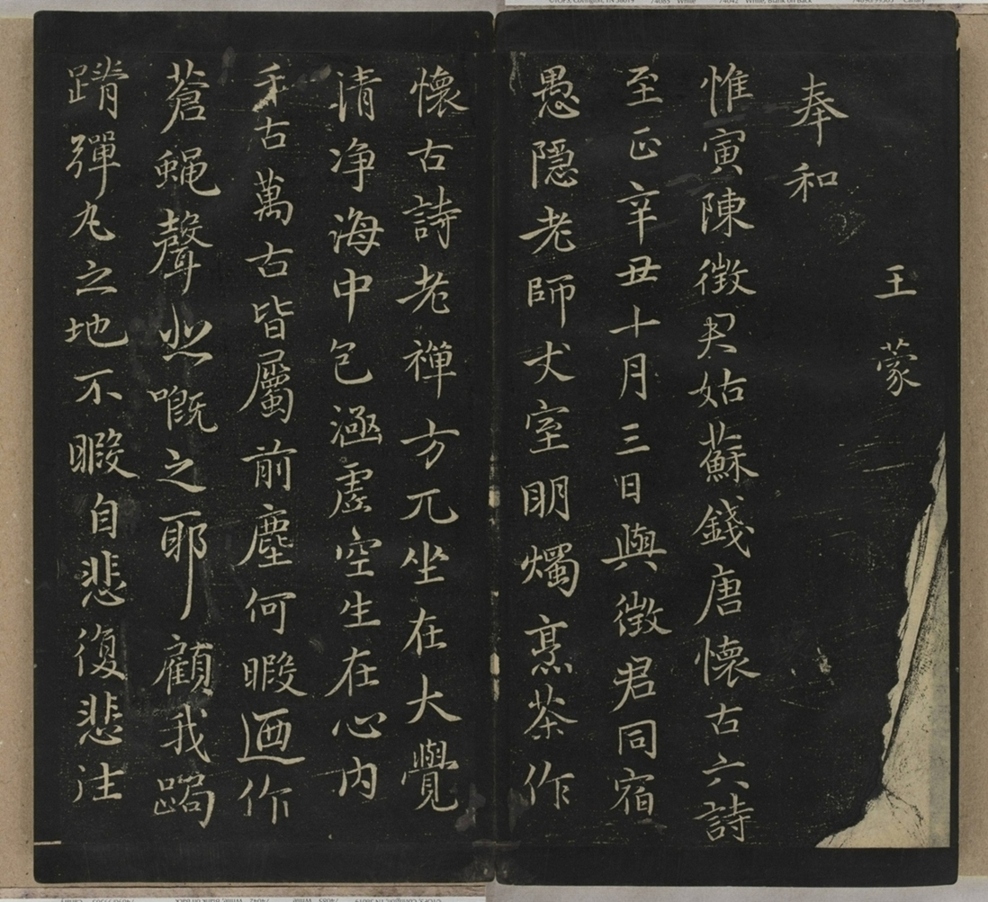 王蒙
奉和
惟寅陳徵君姑蘇錢唐懷古六詩
至正辛丑十月三日與徵君同宿
愚隱老師丈室明燭烹茶作
懷古詩老禪方兀坐在大覺
清净海中包涵虛空生在心内
千古萬古皆屬前塵何暇迺作
蒼蝇聲慨之耶顧我跼
蹐彈丸之地不暇自悲復悲注